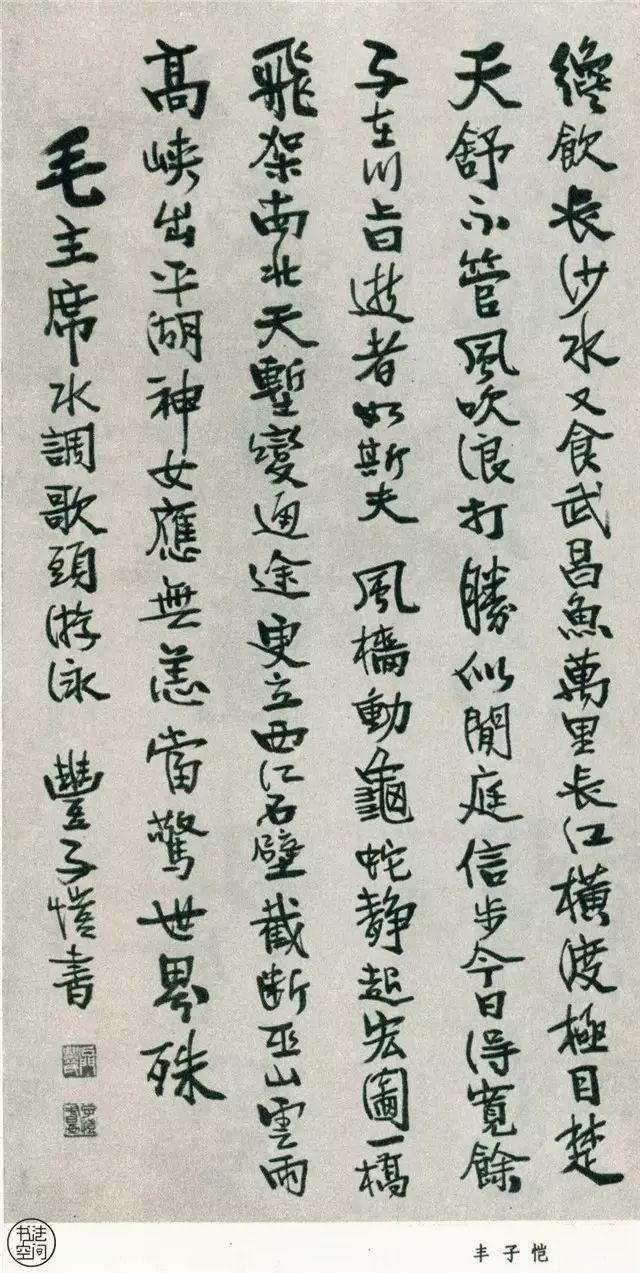 纔飲長沙水又食武昌魚萬里長江橫渡極目楚
天舒不管風吹浪打勝似閒庭信步今日得寬餘
子在川上曰逝者如斯夫 風檣動龜蛇静起宏圖一橋
飛架南北天塹變通途更立西江石壁截断巫山雲雨
高峽出平湖神女應無恙當驚世界殊
毛主席水調歌頭游泳 豐子愷書
书法空间
丰子恺